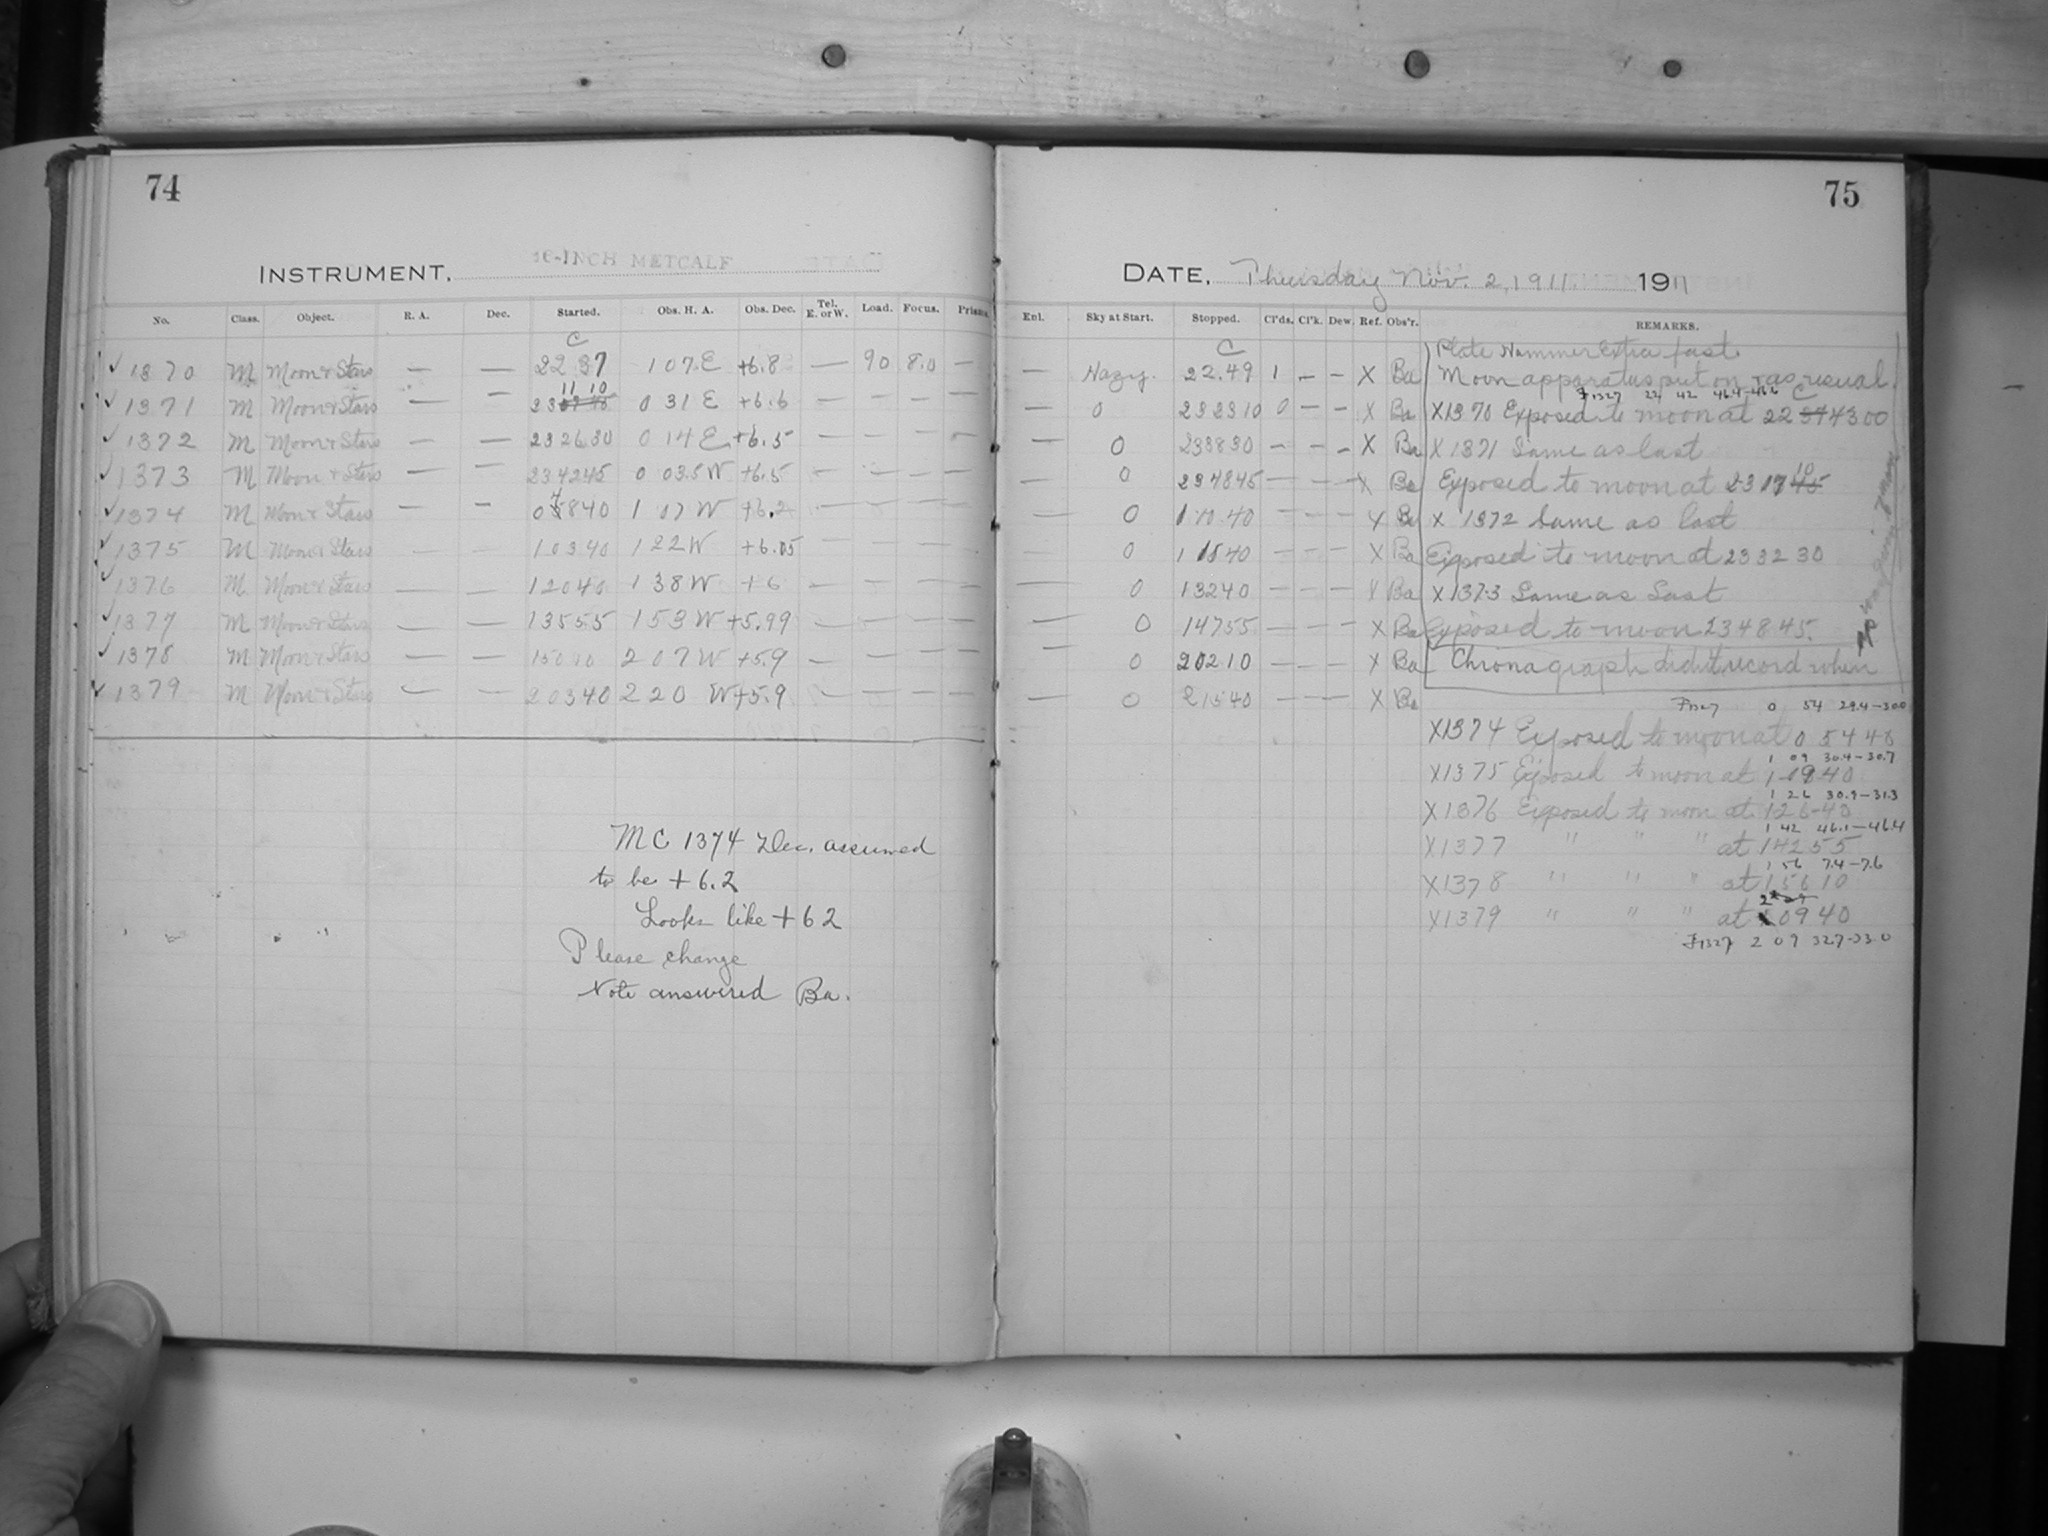 74
INSTRUMENT, 16-INCH METCALF
No. Class. Object. R. A. Dec. Started. Obs. H. A. Obs. Dec. Tel. E. or W. Load. Focus. Prisms.
C
✓ 1370 M Moon & Stars — — 22 37 1 07 E +6.8 — 90 8.0 —
11 10
✓ 1371 M Moon & Stars — — 23 0 31 E +6.6 — — — —
✓ 1372 M Moon & Stars — — 23 26 30 0 14 E +6.5 — — — —
✓ 1373 M Moon & Stars — — 23 42 45 0 03.5 W +6.5 — — — —
✓ 1374 M Moon & Stars — — 0 48 40 1 07 W +6.2 — — — —
✓ 1375 M Moon & Stars — — 1 03 40 1 22 W +6.05 — — — —
✓ 1376 M Moon & Stars — — 1 20 40 1 38 W +6 — — — —
✓ 1377 M Moon & Stars — — 1 35 55 1 53 W +5.99 — — — —
✓ 1378 M Moon & Stars — — 1 50 10 2 07 W +5.9 — — — —
✓ 1379 M Moon & Stars — — 2 03 40 2 20 W +5.9 — — — —
MC 1374 Dec. assumed
to be +6.2
Looks like +62
Please change
Note answered Ba.
75
DATE, Thursday Nov. 2, 1911. 1911
Enl. Sky at Start. Stopped. Cl'ds. Cl'k. Dew. Ref. Obs'r. REMARKS.
C
— Hazy. 22.49 1 — — X Ba
— 0 23 23 10 0 — — X Ba
— 0 23 38 30 — — — X Ba
— 0 23 48 45 — — — X Ba
— 0 1 00 40 — — — X Ba
— 0 1 15 40 — — — X Ba
— 0 1 32 40 — — — X Ba
— 0 1 47 55 — — — X Ba
— 0 2 02 10 — — — X Ba
— 0 2 15 40 — — — X Ba
Plate Hammer Extra fast
Moon apparatus put on as usual.
F1327 22 42 46.4-46.6 C
X1370 Exposed to moon at 22 43 00
X 1371 Same as last
Exposed to moon at 23 17 10
X 1372 Same as last
Exposed to moon at 23 32 30
X 1373 Same as Last
Exposed to moon 23 48 45.
Chronagraph didn't record when
F1327 0 54 29.4-30.0
X1374 Exposed to moon at 0 54 40
1 09 30.4-30.7
X1375 Exposed to moon at 1 09 40
1 26 30.9-31.3
X1376 Exposed to moon at 1 26 40
1 42 46.1-46.4
X1377 " " " at 1 42 55
1 56 7.4-7.6
X1378 " " " at 1 56 10
X1379 " " " at 2 09 40
F1327 2 09 32.7-33.0